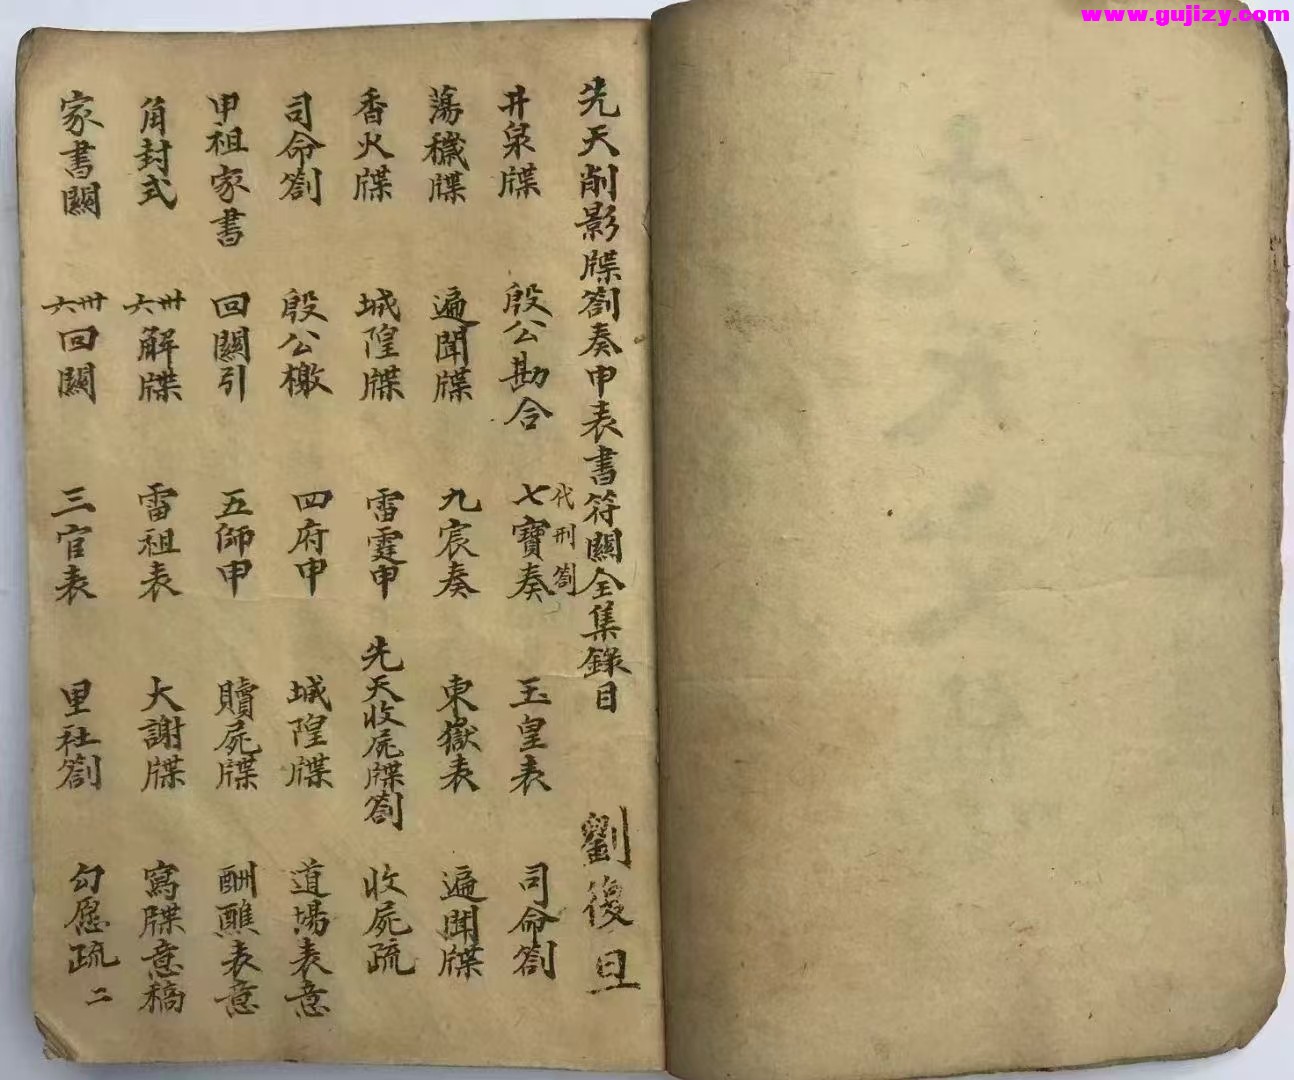 www.gujizy.com
先天削影牒劄奏申表書符關全集錄目 劉俊旦
井泉牒 殷公勘合 代刑劄 七寶奏 玉皇表 司命劄
蕩穢牒 遍聞牒 九宸奏 東嶽表 遍聞牒
香火牒 城隍牒 雷霆申 先天收屍牒劄 收屍疏
司命劄 殷公檄 四府申 城隍牒 道場表意
申祖家書 回關引 五師申 贖屍牒 酬醮表意
角封式 卅六解牒 雷祖表 大謝牒 寫牒意稿
家書關 卅六回關 三官表 里社劄 勾愿疏 二